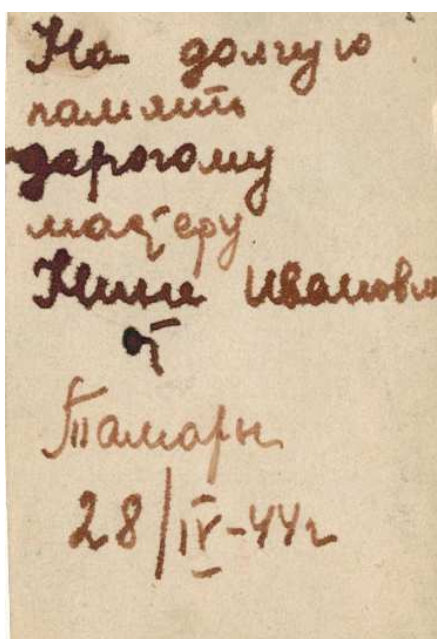 На долгую
память
дарогому
мастеру
Нине Ивановне
от
Тамары
28/IV-44г